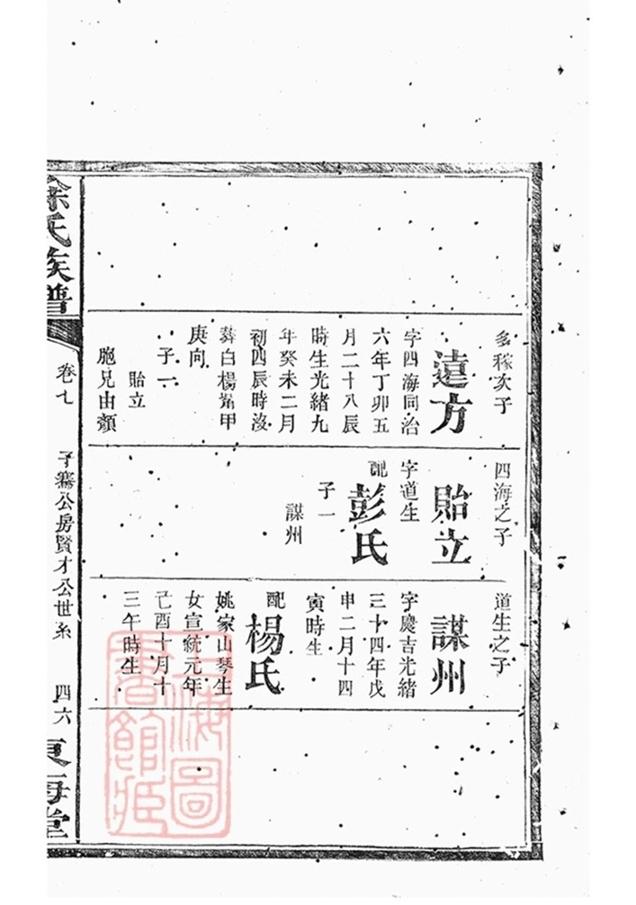 多稼次子
遠方
字四海同治
六年丁卯五
月二十八辰
時生光緒九
年癸未二月
初四辰時沒
葬白楊嵿甲
庚向
子一
貽立
胞兄由顏
四海之子
貽立
字道生
配
彭氏
子一
謀州
道生之子
謀州
字慶吉光緒
三十四年戊
申二月十四
寅時生
配
楊氏
姚家山琴生
女宣統元年
己酉十月十
三午時生
徐氏族譜
卷七
子騫公房賢才公世系
四六
東海堂
上海圖
書館藏